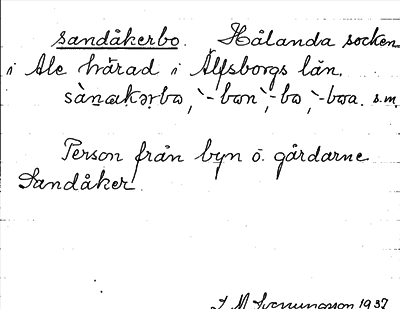 sandåkerbo. Hålanda socken
i Ale härad i Älfsborgs län.
sànakərbo, `-bon, `-bo, `-boa. s.m.
Person från byn o. gårdarne
Sandåker.
J M Svenungsson 1937